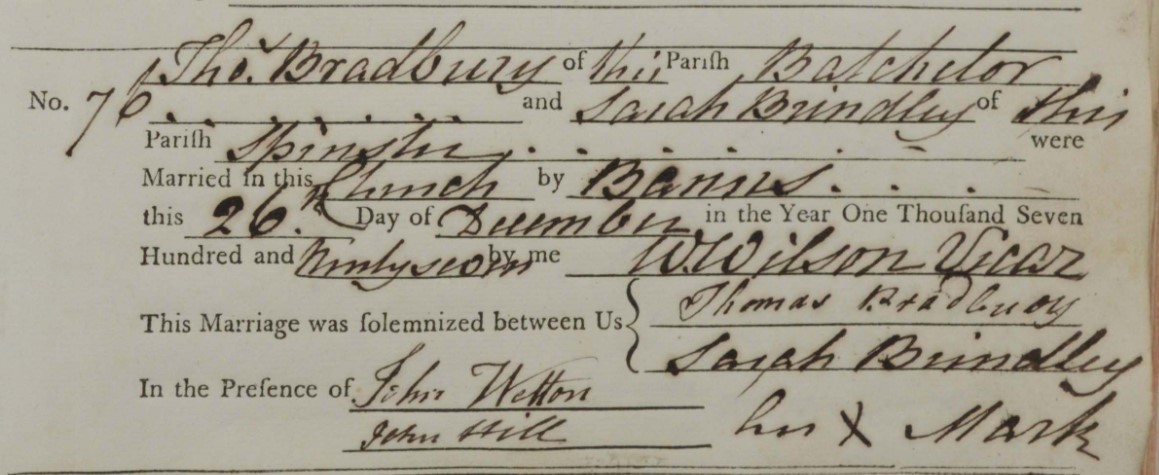 Tho.s Bradbury of this Pariſh Batchelor
No. 76 and Sarah Brindley of this
Pariſh Spinster were
Married in this Church by Banns
this 26 Day of December in the Year One Thouſand Seven
Hundred and Ninty seven by me W. Wilson Vicar
This Marriage was ſolemnized between Us { Thomas Bradbury
Sarah Brindley
In the Preſence of John Wetton her X Mark
John Hill